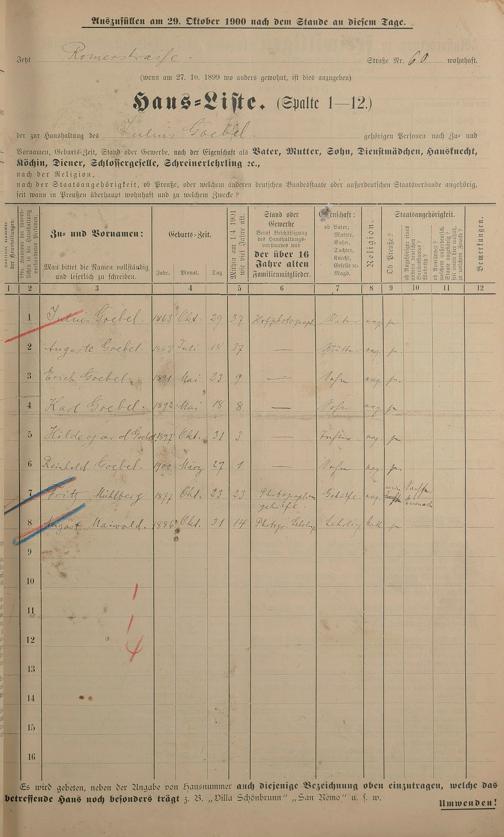 Auszufüllen am 29. Oktober 1900 nach dem Stande an diesem Tage.
Jetzt Romerstrasse. Straße Nr. 60 wohnhaft.
(wenn am 27. 10. 1899 wo anders gewohnt, ist dies anzugeben)
Haus-Liste. (Spalte 1—12.)
der zur Haushaltung des Julius Goebel gehörigen Personen nach Zu- und
Vornamen, Geburts-Zeit, Stand oder Gewerbe, nach der Eigenschaft als Vater, Mutter, Sohn, Dienstmädchen, Hausknecht,
Köchin, Diener, Schlossergeselle, Schreinerlehrling ꝛc.,
nach der Religion,
nach der Staatsangehörigkeit, ob Preuße, oder welchem anderen deutschen Bundesstaate oder außerdeutschen Staatsverbande angehörig,
seit wann wohnhaft und zu welchem Zwecke?
Zu- und Vornamen:
Man bittet die Namen vollständig und leserlich zu schreiben.
Geburts-Zeit.
Jahr. Monat. Tag
Mithin am 1.4.1901 wie viel Jahre alt.
Stand oder
Gewerbe
Beruf Beschäftigung
des Haushaltungs-
vorstandes und
der über 16
Jahre alten
Familienmitglieder.
Eigenschaft:
ob Vater,
Mutter,
Sohn,
Tochter,
Knecht,
Geselle u.
Magd.
Religion
Staatsangehörigkeit.
Ob Preuße?
Bemerkungen.
1 2 3 4 5 6 7 8 9 10 11 12
1 Julius Goebel 1863 Okt. 29 37 Hofphotograph Vater ev. ja
2 Auguste Goebel Juli 14 37 — Mutter ev. ja
3 Erich Goebel. 1891 Mai 23 9 — Sohn ev. ja
4 Karl Goebel. 1892 Mai 18 8 — Sohn ev. ja
5 Hildegard Goebel 1897 Okt. 31 3 — ev. ja
6 Reinhold Goebel. 1900 März 27 1 — Sohn ev. ja
7 Fritz Mühlberg 1877 Okt. 23 23 Photographen gehülfe Gehülfe ev.
8 August Maiwald. 1886 Okt. 31 14 Photogr. Lehrling Lehrling kath. ja
9
10
11
12
13
14
15
16
1
1
4
Es wird gebeten, neben der Angabe von Hausnummer auch diejenige Bezeichnung oben einzutragen, welche das
betreffende Haus noch besonders trägt z. B. „Villa Schönbrunn" „San Remo" u. s. w.
Umwenden!